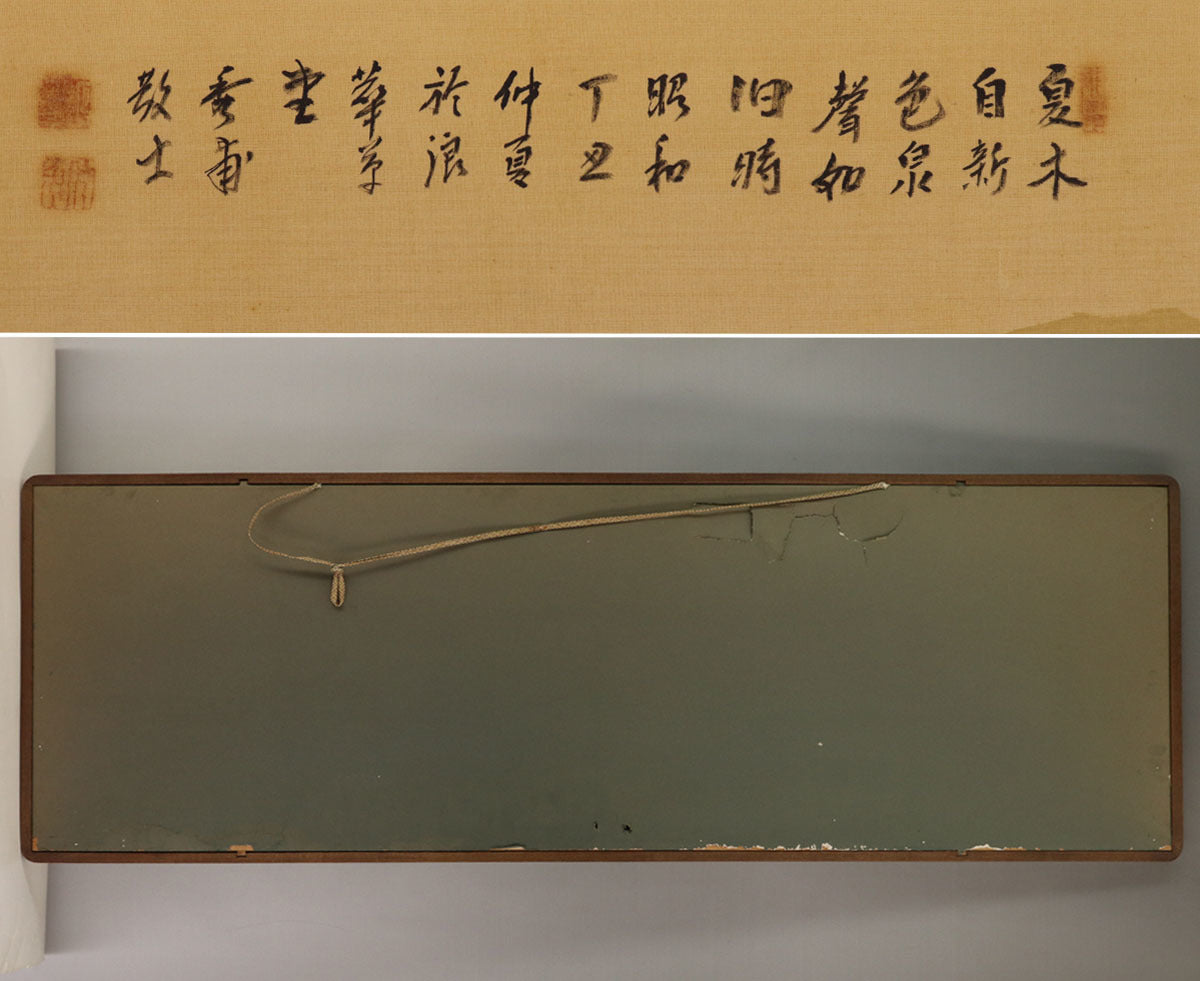 夏木
自新
色泉
聲如
旧時
昭和
丁丑
仲夏
於浪
華草
堂
秀甫
散士